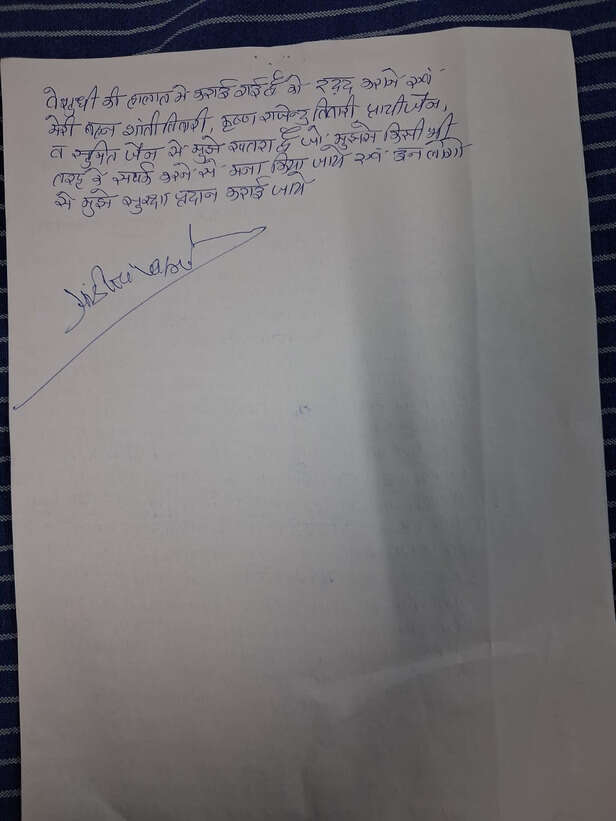 बेसुधी की हालात मे कराई गई है को रद्द कराने एवं
मेरी बहन शांती तिवारी, कृष्ण राजेन्द्र तिवारी प्राची जैन,
व सुमित जैन से मुझे खतरा है जो मुझसे किसी भी
तरह के संपर्क करने से मना किया जाये एवं इन लोगो
से मुझे सुरक्षा प्रदान कराई जाये